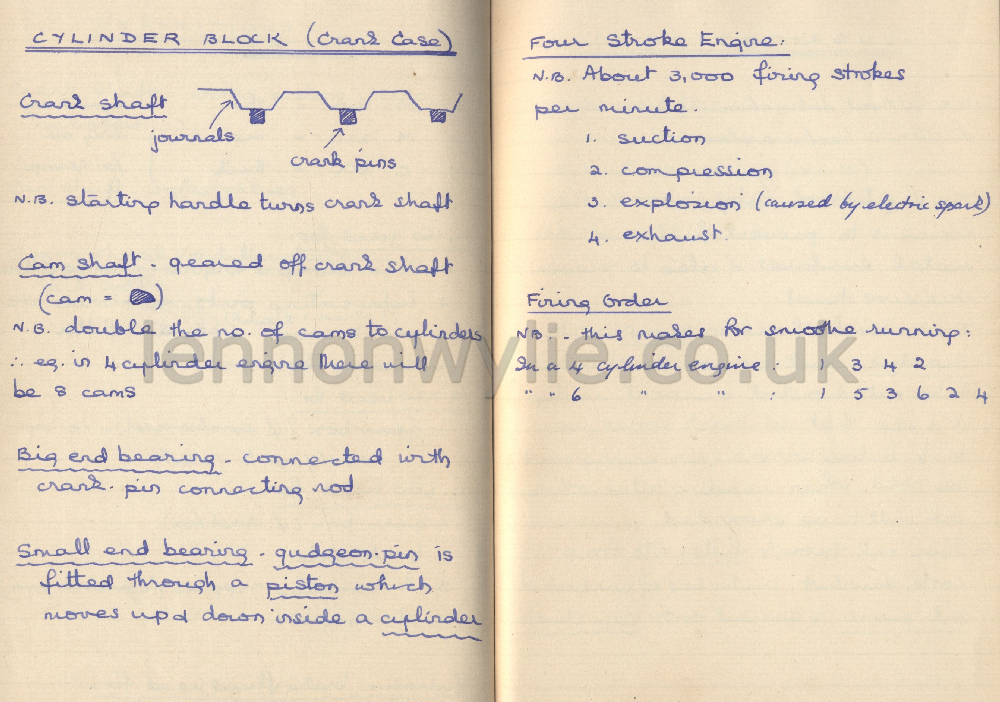 CYLINDER BLOCK (Crank Case)
Crank shaft
journals
crank pins
N.B. starting handle turns crank shaft
Cam shaft - geared off crank shaft
(cam = )
N.B. double the no. of cams to cylinders
∴ eg. in 4 cylinder engine there will
be 8 cams
Big end bearing - connected with
crank-pin connecting rod
Small end bearing - gudgeon-pin is
fitted through a piston which
moves up & down inside a cylinder
Four Stroke Engine:
N.B. About 3,000 firing strokes
per minute.
1. suction
2. compression
3. explosion (caused by electric spark)
4. exhaust.
Firing Order
NB: - this makes for smoothe running:
In a 4 cylinder engine : 1 3 4 2
" " 6 " " : 1 5 3 6 2 4
lennonwylie.co.uk